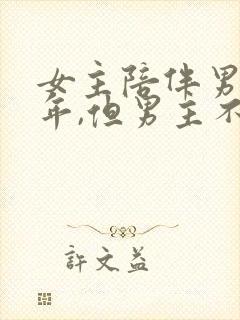 女主陪伴男
年,但男主不
许文益